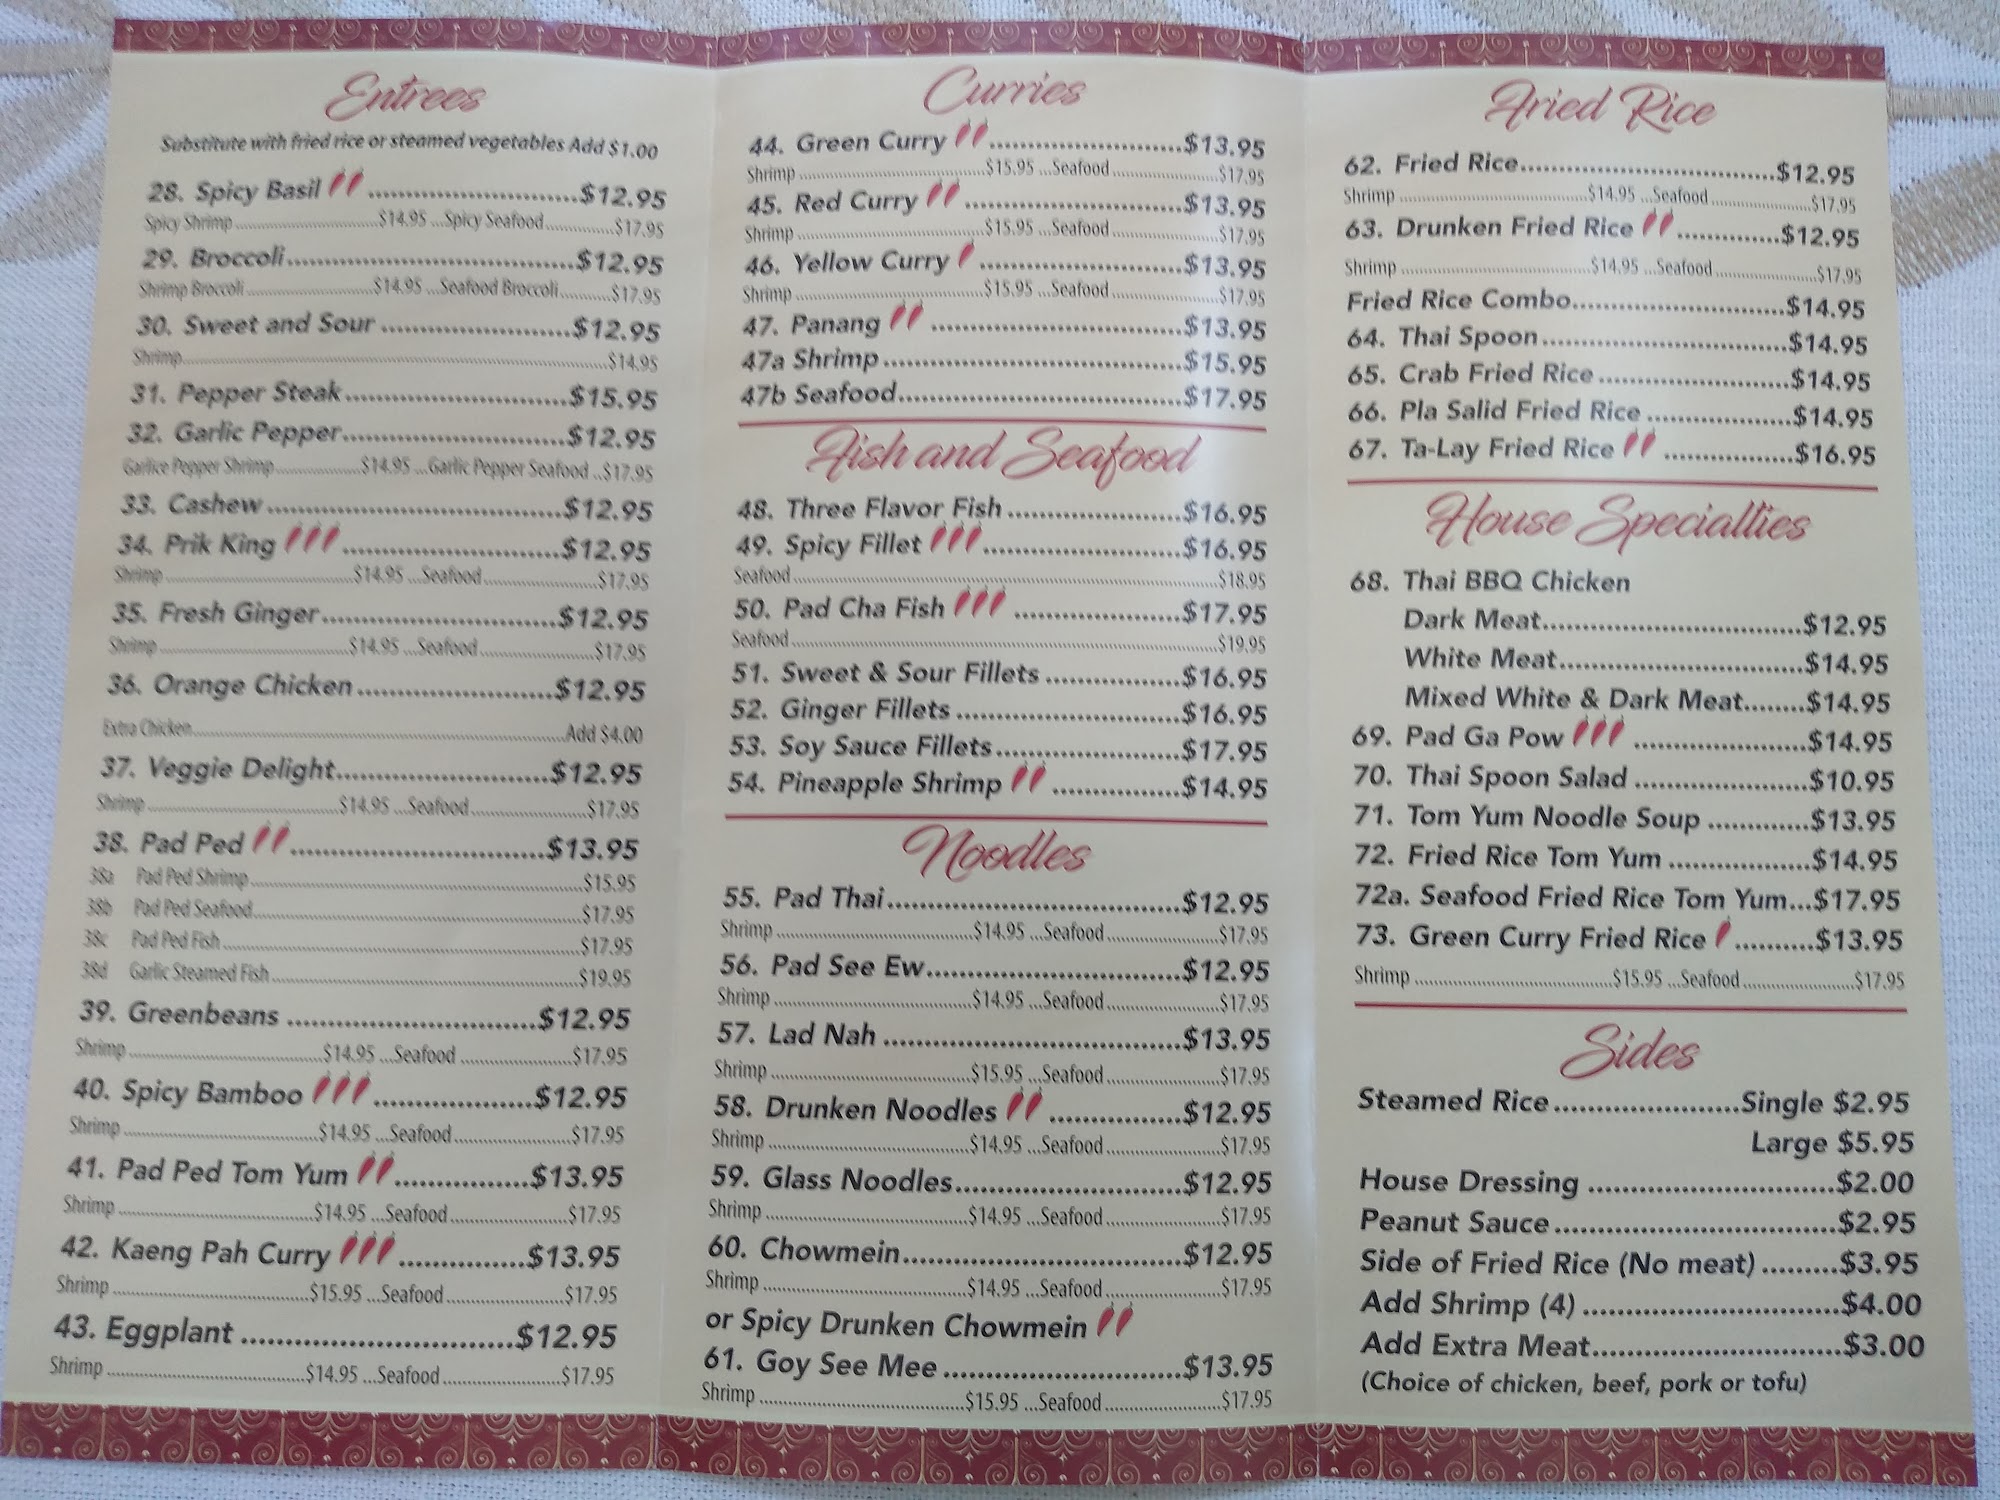 Entrees
Substitute with fried rice or steamed vegetables Add $1.00
28. Spicy Basil ....................$12.95
Spicy Shrimp ....................$14.95 ...Spicy Seafood....................$17.95
29. Broccoli....................$12.95
Shrimp Broccoli ....................$14.95 ...Seafood Broccoli....................$17.95
30. Sweet and Sour ....................$12.95
Shrimp....................$14.95
31. Pepper Steak ....................$15.95
32. Garlic Pepper....................$12.95
Garlice Pepper Shrimp....................$14.95 ...Garlic Pepper Seafood ..$17.95
33. Cashew ....................$12.95
34. Prik King ....................$12.95
Shrimp ....................$14.95 ...Seafood....................$17.95
35. Fresh Ginger....................$12.95
Shrimp ....................$14.95 ...Seafood....................$17.95
36. Orange Chicken ....................$12.95
Extra Chicken....................Add $4.00
37. Veggie Delight....................$12.95
Shrimp ....................$14.95 ...Seafood....................$17.95
38. Pad Ped ....................$13.95
38a Pad Ped Shrimp ....................$15.95
38b Pad Ped Seafood....................$17.95
38c Pad Ped Fish ....................$17.95
38d Garlic Steamed Fish....................$19.95
39. Greenbeans ....................$12.95
Shrimp ....................$14.95 ...Seafood ....................$17.95
40. Spicy Bamboo ....................$12.95
Shrimp ....................$14.95 ...Seafood....................$17.95
41. Pad Ped Tom Yum ....................$13.95
Shrimp ....................$14.95 ...Seafood....................$17.95
42. Kaeng Pah Curry ....................$13.95
Shrimp ....................$15.95 ...Seafood....................$17.95
43. Eggplant ....................$12.95
Shrimp ....................$14.95 ...Seafood....................$17.95
Curries
44. Green Curry ....................$13.95
Shrimp ....................$15.95 ...Seafood....................$17.95
45. Red Curry ....................$13.95
Shrimp ....................$15.95 ...Seafood....................$17.95
46. Yellow Curry ....................$13.95
Shrimp ....................$15.95 ...Seafood....................$17.95
47. Panang ....................$13.95
47a Shrimp ....................$15.95
47b Seafood....................$17.95
Fish and Seafood
48. Three Flavor Fish ....................$16.95
49. Spicy Fillet ....................$16.95
Seafood....................$18.95
50. Pad Cha Fish ....................$17.95
Seafood....................$19.95
51. Sweet & Sour Fillets ....................$16.95
52. Ginger Fillets ....................$16.95
53. Soy Sauce Fillets....................$17.95
54. Pineapple Shrimp ....................$14.95
Noodles
55. Pad Thai....................$12.95
Shrimp ....................$14.95 ...Seafood....................$17.95
56. Pad See Ew....................$12.95
Shrimp ....................$14.95 ...Seafood....................$17.95
57. Lad Nah ....................$13.95
Shrimp ....................$15.95 ...Seafood....................$17.95
58. Drunken Noodles ....................$12.95
Shrimp ....................$14.95 ...Seafood....................$17.95
59. Glass Noodles....................$12.95
Shrimp ....................$14.95 ...Seafood....................$17.95
60. Chowmein....................$12.95
Shrimp ....................$14.95 ...Seafood....................$17.95
or Spicy Drunken Chowmein
61. Goy See Mee ....................$13.95
Shrimp ....................$15.95 ...Seafood....................$17.95
Fried Rice
62. Fried Rice....................$12.95
Shrimp ....................$14.95 ...Seafood....................$17.95
63. Drunken Fried Rice ....................$12.95
Shrimp ....................$14.95 ...Seafood....................$17.95
Fried Rice Combo....................$14.95
64. Thai Spoon ....................$14.95
65. Crab Fried Rice ....................$14.95
66. Pla Salid Fried Rice ....................$14.95
67. Ta-Lay Fried Rice ....................$16.95
House Specialties
68. Thai BBQ Chicken
Dark Meat....................$12.95
White Meat....................$14.95
Mixed White & Dark Meat........$14.95
69. Pad Ga Pow ....................$14.95
70. Thai Spoon Salad ....................$10.95
71. Tom Yum Noodle Soup ............$13.95
72. Fried Rice Tom Yum ................$14.95
72a. Seafood Fried Rice Tom Yum...$17.95
73. Green Curry Fried Rice ..........$13.95
Shrimp ....................$15.95 ...Seafood....................$17.95
Sides
Steamed Rice....................Single $2.95
Large $5.95
House Dressing ....................$2.00
Peanut Sauce....................$2.95
Side of Fried Rice (No meat) .........$3.95
Add Shrimp (4) ....................$4.00
Add Extra Meat....................$3.00
(Choice of chicken, beef, pork or tofu)